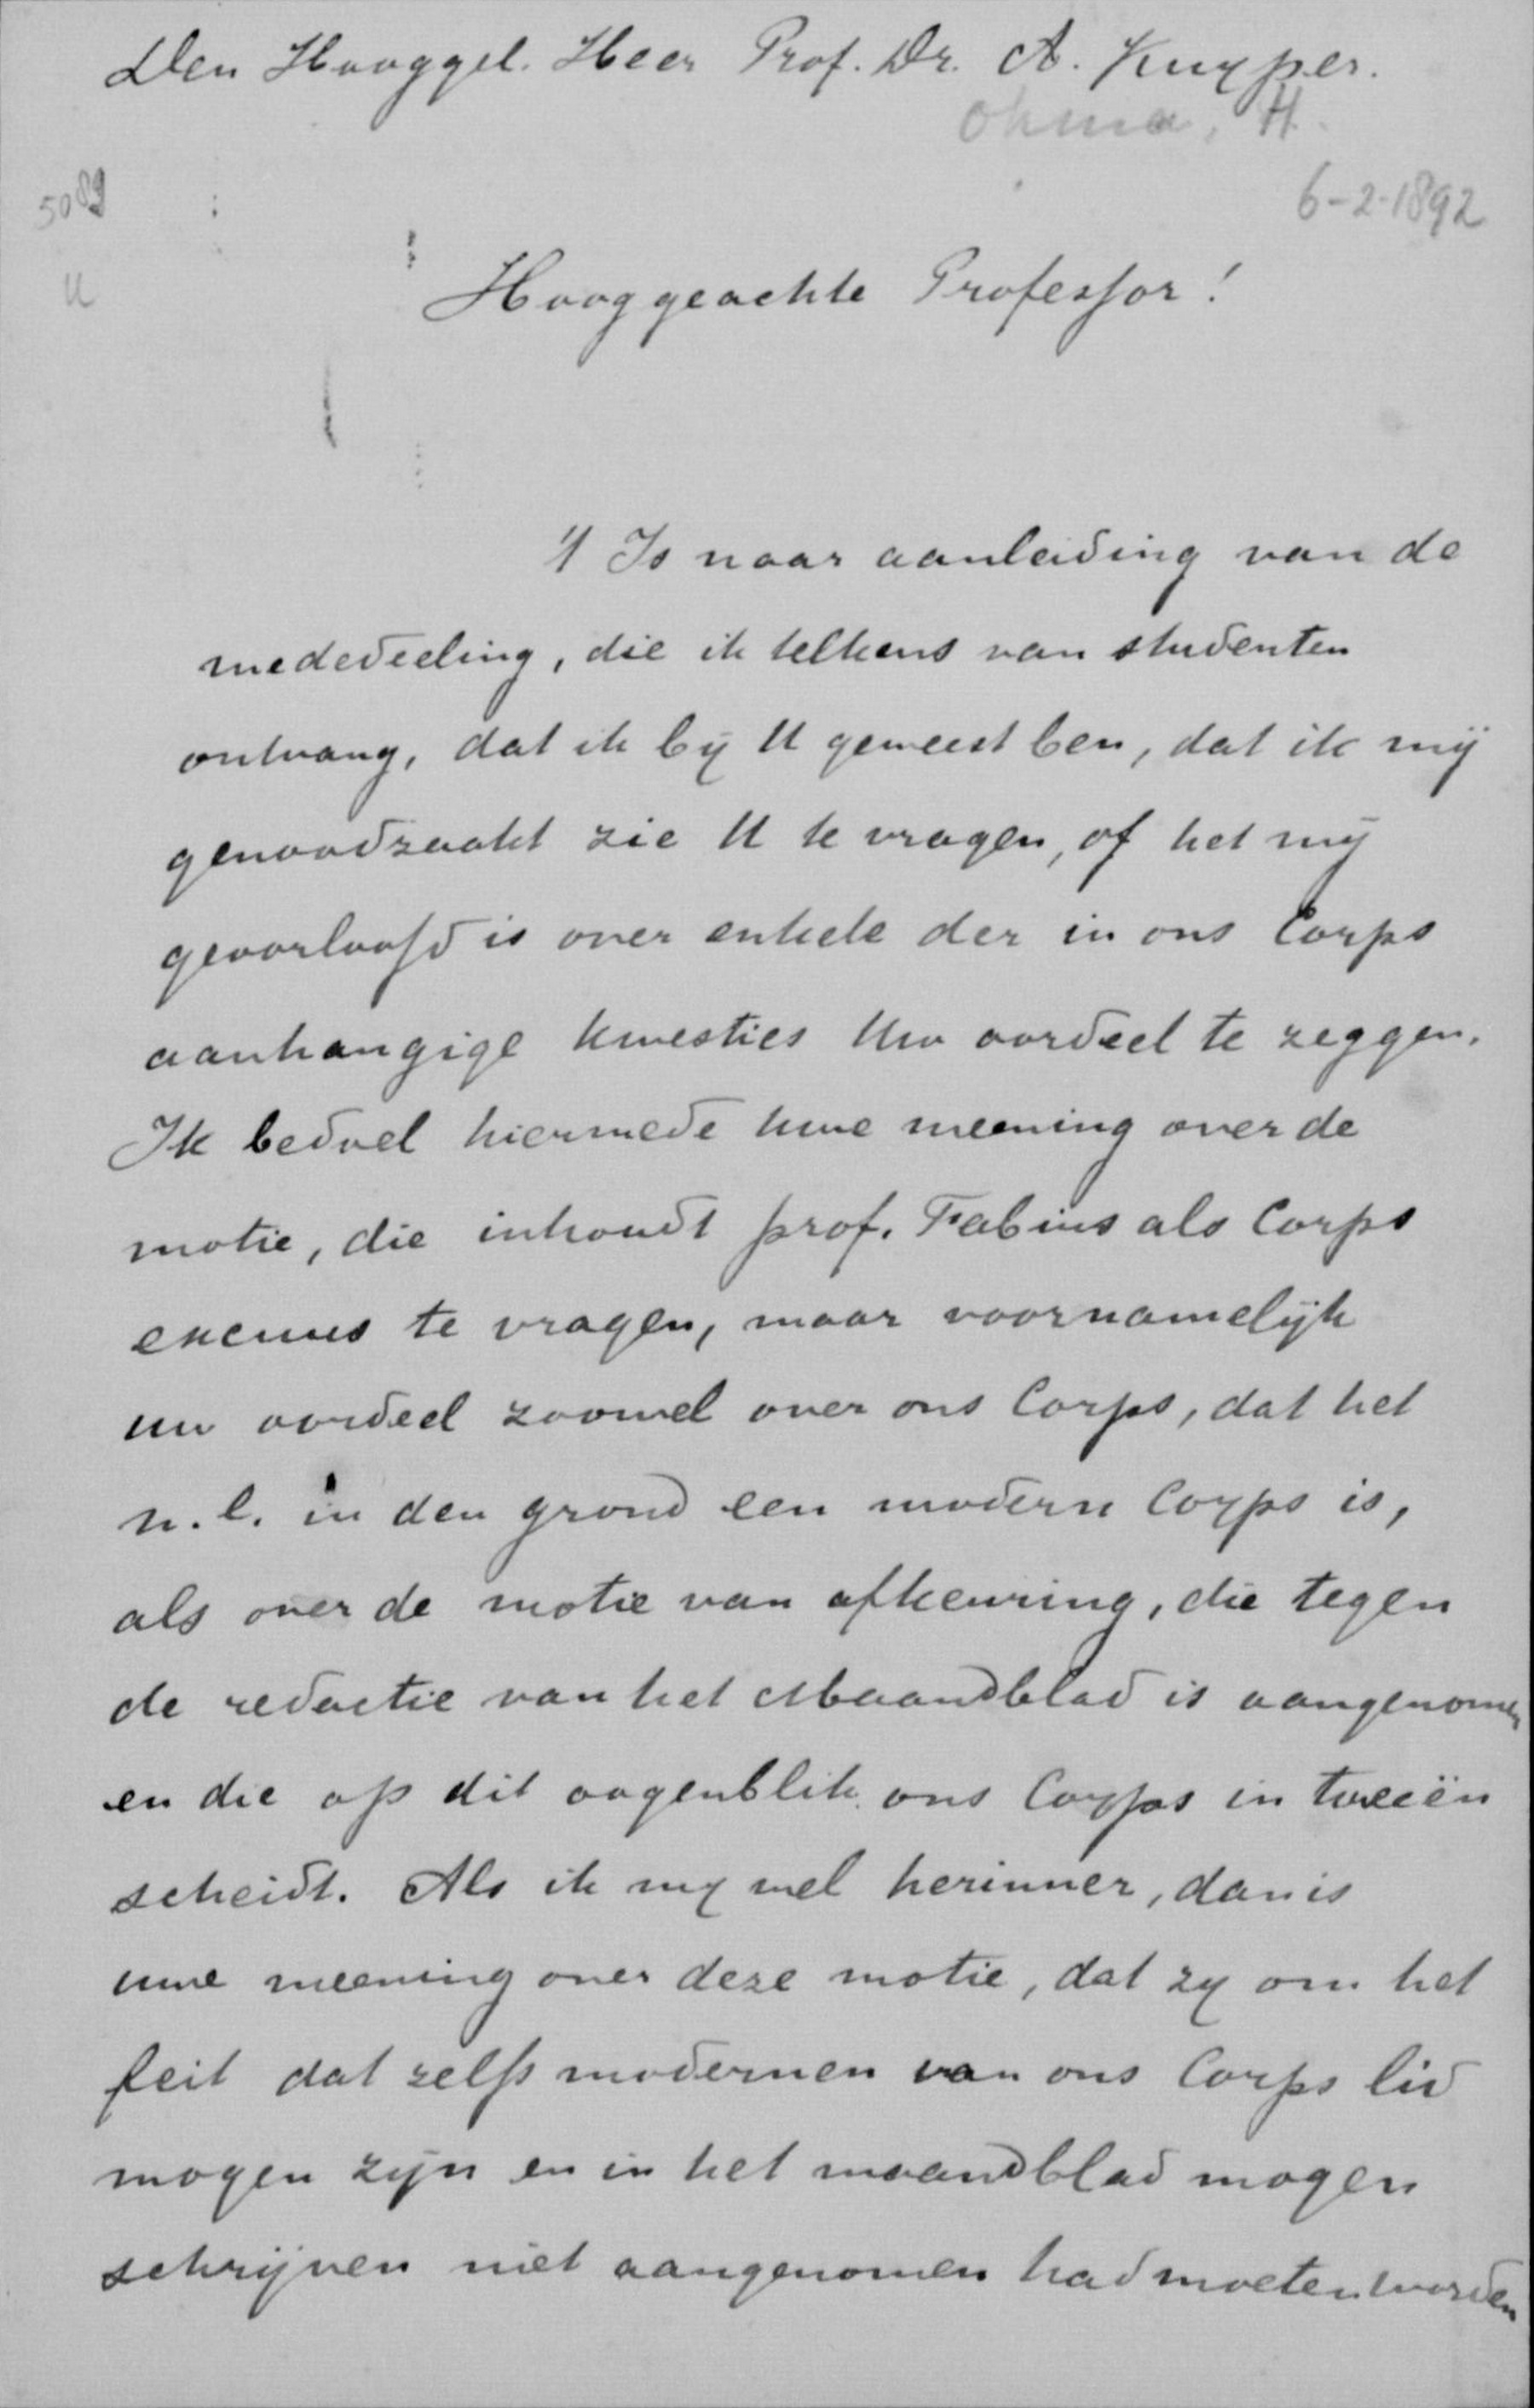 Den Hooggel. Heer Prof. Dr. A. Kuyper.
Okma, H.
6-2-1892
5089
U
Hooggeachte Professor!
't Is naar aanleiding van de
mededeeling, die ik telkens van studenten
ontvang, dat ik bij U geweest ben, dat ik mij
genoodzaakt zie U te vragen, of het mij
geoorloofd is over enkele der in ons Corps
aanhangige kwesties Uw oordeel te zeggen.
Ik bedoel hiermede Uwe meening over de
motie, die inhoudt prof. Fabius als Corps
excuus te vragen, maar voornamelijk
uw oordeel zoowel over ons Corps, dat het
n.l. in den grond een modern Corps is,
als over de motie van afkeuring, die tegen
de redactie van het Maandblad is aangenomen
en die op dit oogenblik ons Corps in tweeën
scheidt. Als ik mij wel herinner, dan is
uwe meening over deze motie, dat zij om het
feit dat zelfs modernen van ons Corps lid
mogen zijn en in het maandblad mogen
schrijven niet aangenomen had moeten worden